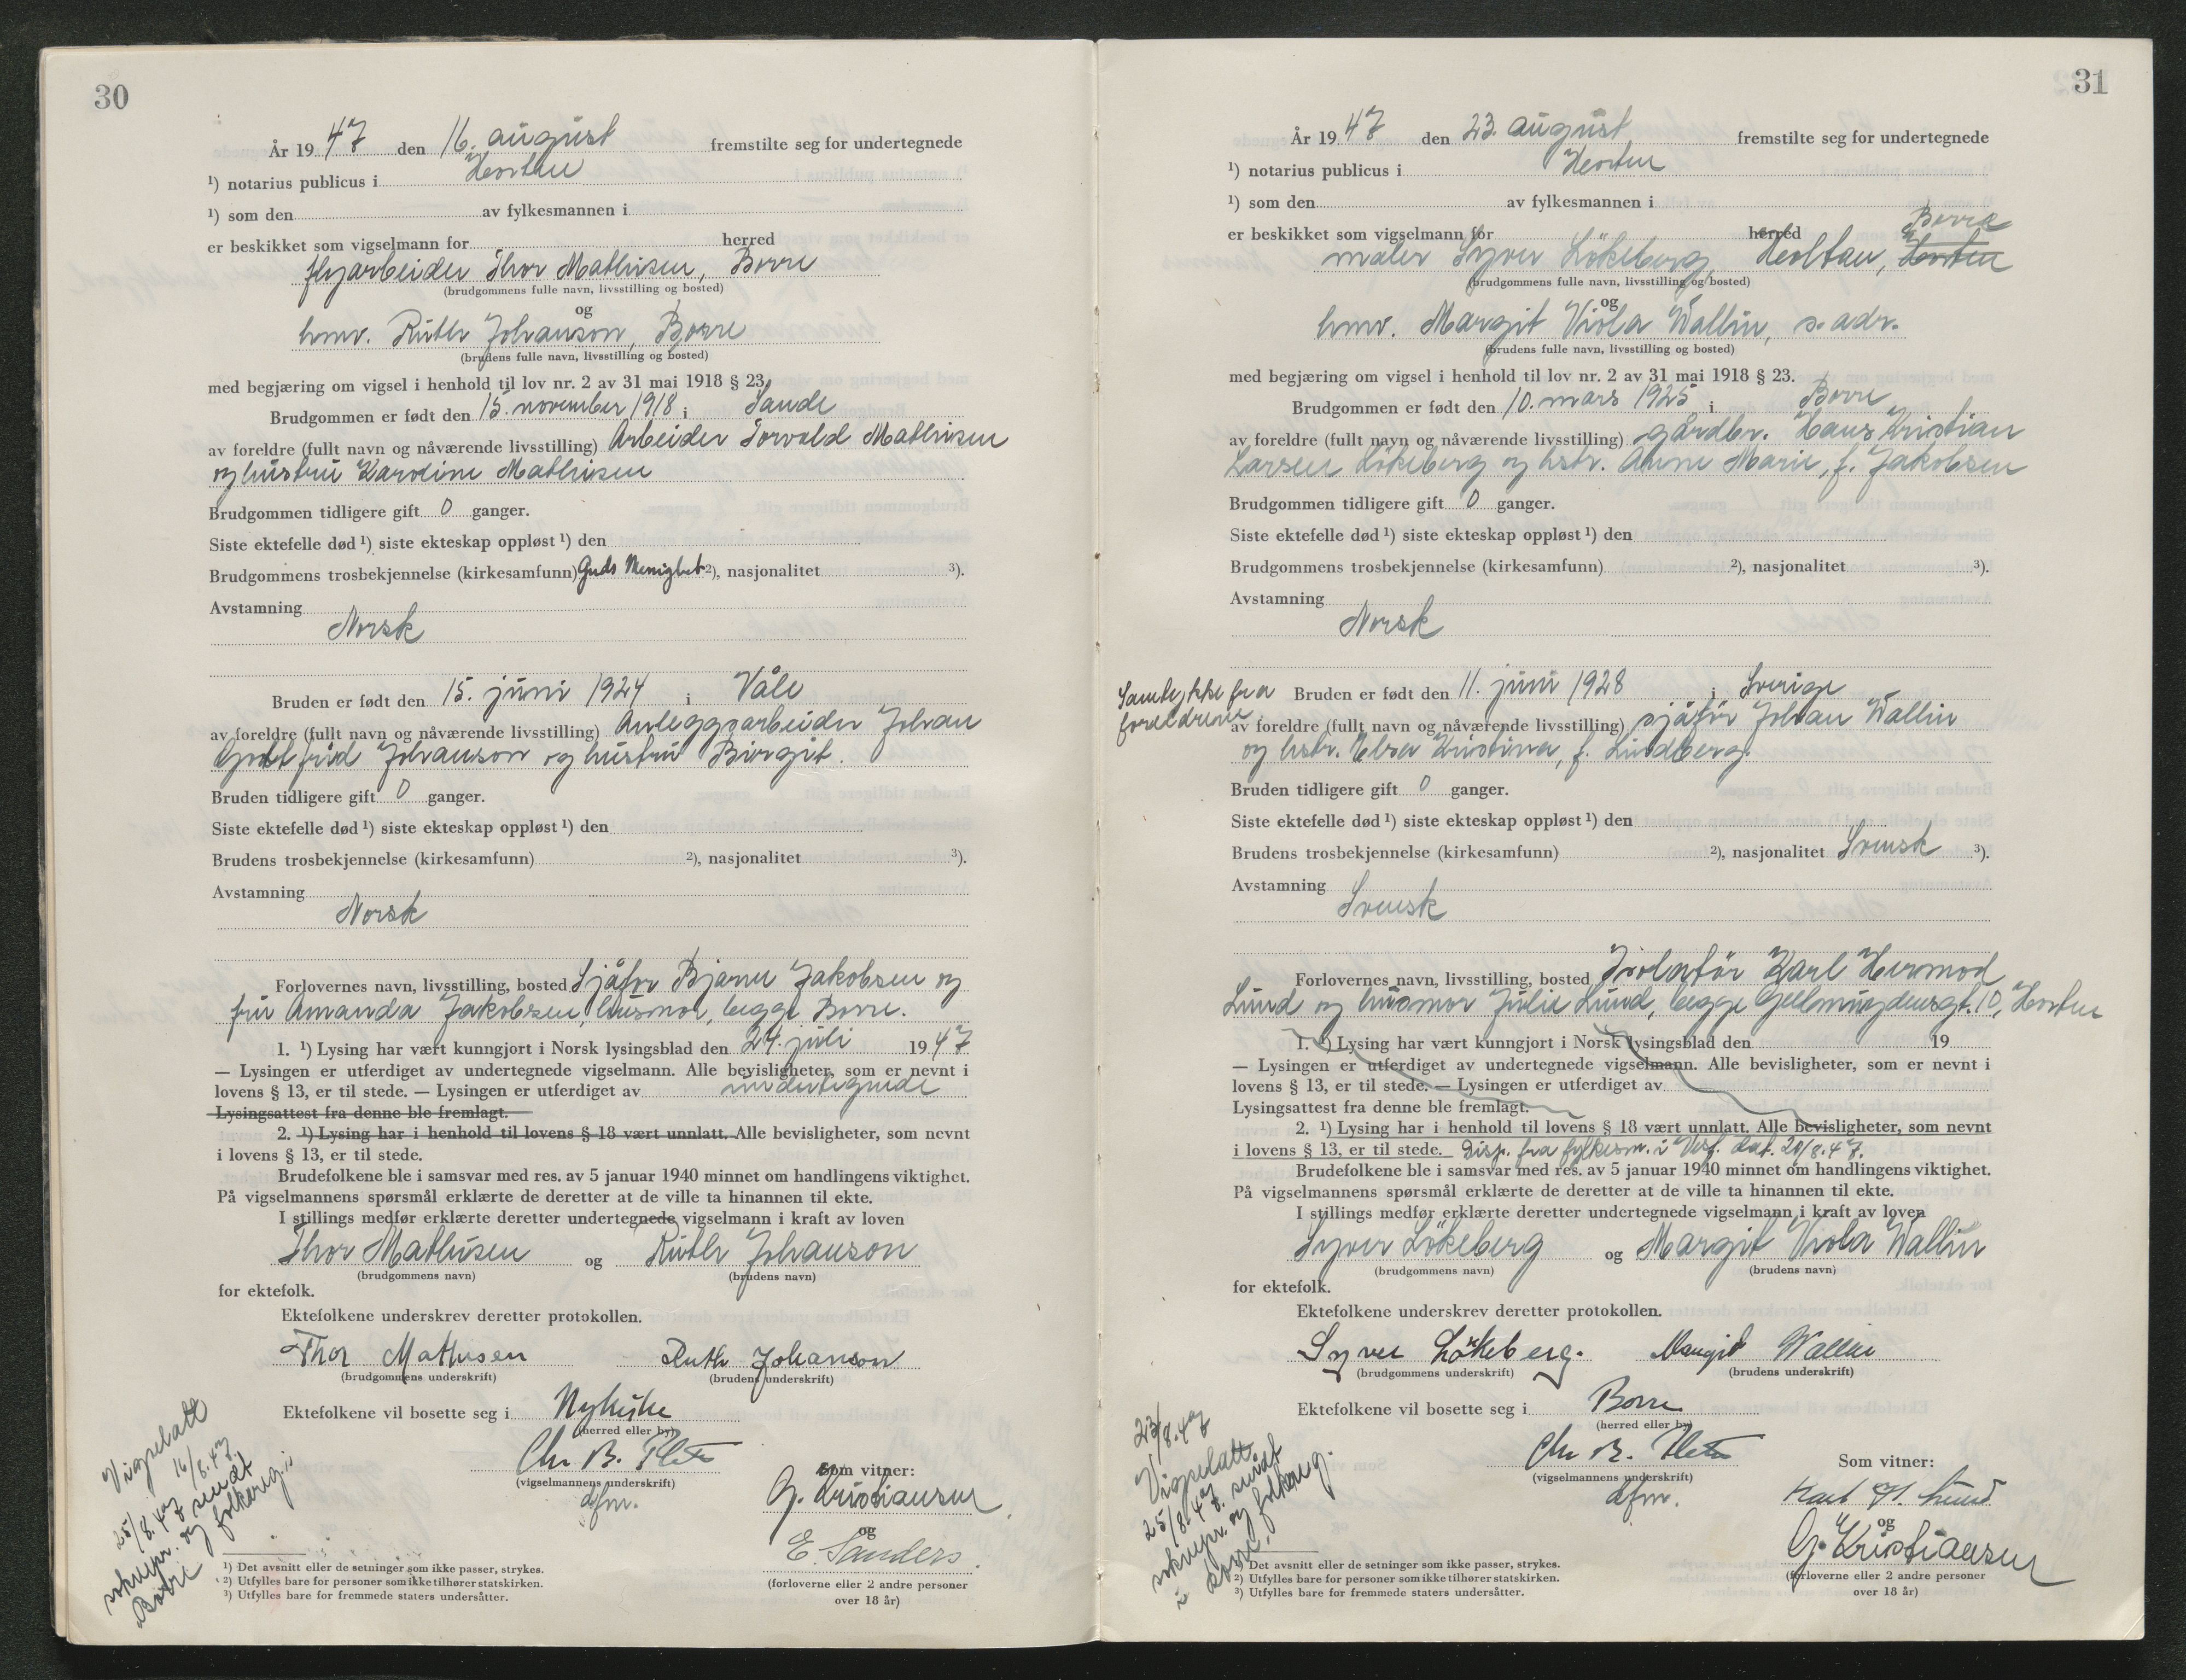 30
År 1947 den 16. august fremstilte seg for undertegnede
¹) notarius publicus i Horten
¹) som den av fylkesmannen i
er beskikket som vigselmann for herred
flyarbeider Thor Mathisen, Borre
(brudgommens fulle navn, livsstilling og bosted)
og
hmv. Ruth Johanson, Borre
(brudens fulle navn, livsstilling og bosted)
med begjæring om vigsel i henhold til lov nr. 2 av 31 mai 1918 § 23.
Brudgommen er født den 15. november 1918 i Sande
av foreldre (fullt navn og nåværende livsstilling) Arbeider Torvald Mathisen
og hustru Karoline Mathisen
Brudgommen tidligere gift 0 ganger.
Siste ektefelle død ¹) siste ekteskap oppløst ¹) den
Brudgommens trosbekjennelse (kirkesamfunn) Guds Menighet ²), nasjonalitet ³).
Avstamning
Norsk
Bruden er født den 15. juni 1924 i Våle
av foreldre (fullt navn og nåværende livsstilling) Anleggsarbeider Johan
Gottfrid Johanson og hustru Birgit.
Bruden tidligere gift 0 ganger.
Siste ektefelle død ¹) siste ekteskap oppløst ¹) den
Brudens trosbekjennelse (kirkesamfunn) ²), nasjonalitet ³).
Avstamning
Norsk
Forlovernes navn, livsstilling, bosted Sjåfør Bjarne Jakobsen og
fru Amanda Jakobsen, husmor, begge Borre.
1. ¹) Lysing har vært kunngjort i Norsk lysingsblad den 24. juli 1947
— Lysingen er utferdiget av undertegnede vigselmann. Alle bevisligheter, som er nevnt i
lovens § 13, er til stede. — Lysingen er utferdiget av undertegnede
Lysingsattest fra denne ble fremlagt.
2. ¹) Lysing har i henhold til lovens § 18 vært unnlatt. Alle bevisligheter, som nevnt
i lovens § 13, er til stede.
Brudefolkene ble i samsvar med res. av 5 januar 1940 minnet om handlingens viktighet.
På vigselmannens spørsmål erklærte de deretter at de ville ta hinannen til ekte.
I stillings medfør erklærte deretter undertegnede vigselmann i kraft av loven
Thor Mathisen og Ruth Johanson
(brudgommens navn) (brudens navn)
for ektefolk.
Ektefolkene underskrev deretter protokollen.
Thor Mathisen Ruth Johanson
(brudgommens underskrift) (brudens underskrift)
Ektefolkene vil bosette seg i Nykirke
(herred eller by)
Chr. B.
(vigselmannens underskrift)
dfm.
Som vitner:
G. Kristiansen
og
E. Sanders.
(forloverne eller 2 andre personer
over 18 år)
Vigselatt
16/8.47
25/8.47 sendt
soknepr. og folkereg. i
Borre
¹) Det avsnitt eller de setninger som ikke passer, strykes.
²) Utfylles bare for personer som ikke tilhører statskirken.
³) Utfylles bare for fremmede staters undersåtter.
31
År 1947 den 23. august fremstilte seg for undertegnede
¹) notarius publicus i Horten
¹) som den av fylkesmannen i
er beskikket som vigselmann for herred
Borre
maler Syver Lökeberg, Holtan, Horten
(brudgommens fulle navn, livsstilling og bosted)
og
hmv. Margit Viola Wallin, s. adr.
(brudens fulle navn, livsstilling og bosted)
med begjæring om vigsel i henhold til lov nr. 2 av 31 mai 1918 § 23.
Brudgommen er født den 10. mars 1925 i Borre
av foreldre (fullt navn og nåværende livsstilling) gårdbr. Hans Kristian
Larsen Lökeberg og hstr. Anne Marie, f. Jakobsen
Brudgommen tidligere gift 0 ganger.
Siste ektefelle død ¹) siste ekteskap oppløst ¹) den
Brudgommens trosbekjennelse (kirkesamfunn) ²), nasjonalitet ³).
Avstamning
Norsk
Samtykke fra
foreldrene
Bruden er født den 11. juni 1928 i Sverige
av foreldre (fullt navn og nåværende livsstilling) sjåför Johan Wallin
og hstr. Elsa Kristina, f. Lindberg.
Bruden tidligere gift 0 ganger.
Siste ektefelle død ¹) siste ekteskap oppløst ¹) den
Brudens trosbekjennelse (kirkesamfunn) ²), nasjonalitet Svensk ³).
Avstamning
Svensk
Forlovernes navn, livsstilling, bosted Isolatör Karl Hermod
Lund og husmor Julie Lund, begge Gyldenløvesgt. 10, Horten
1. ¹) Lysing har vært kunngjort i Norsk lysingsblad den 19
— Lysingen er utferdiget av undertegnede vigselmann. Alle bevisligheter, som er nevnt i
lovens § 13, er til stede. — Lysingen er utferdiget av
Lysingsattest fra denne ble fremlagt.
2. ¹) Lysing har i henhold til lovens § 18 vært unnlatt. Alle bevisligheter, som nevnt
i lovens § 13, er til stede. Disp. fra fylkesm. i Vesf. dat. 20/8.47.
Brudefolkene ble i samsvar med res. av 5 januar 1940 minnet om handlingens viktighet.
På vigselmannens spørsmål erklærte de deretter at de ville ta hinannen til ekte.
I stillings medfør erklærte deretter undertegnede vigselmann i kraft av loven
Syver Lökeberg og Margit Viola Wallin
(brudgommens navn) (brudens navn)
for ektefolk.
Ektefolkene underskrev deretter protokollen.
Syver Lökeberg. Margit Wallin
(brudgommens underskrift) (brudens underskrift)
Ektefolkene vil bosette seg i Borre
(herred eller by)
Chr. B.
(vigselmannens underskrift)
dfm.
Som vitner:
Karl H. Lund
og
G. Kristiansen
(forloverne eller 2 andre personer
over 18 år)
23/8.47
Vigselatt.
25/8.47. sendt
soknepr. og folkereg.
i Borre.
¹) Det avsnitt eller de setninger som ikke passer, strykes.
²) Utfylles bare for personer som ikke tilhører statskirken.
³) Utfylles bare for fremmede staters undersåtter.